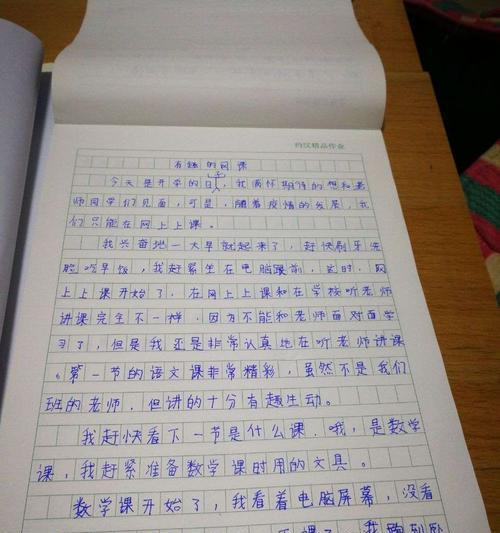 约汉精品作业
有趣的网课
今天是开学的日子，我满怀期待的想和老
师同学们见面，可是，随着疫情的发展，我
们只能在网上上课。
我兴奋地一大早就起来了，赶快刷牙洗
脸吃早饭，我赶紧坐在电脑跟前，这时，网
上上课开始了，在网上上课和在学校听老师
讲课完全不一样，因为不能和老师面对面学
习了，但是我还是非常认真地在听老师讲课
。第一节的语文课非常精彩，虽然不是我们
班的老师，但讲的十分有趣生动。
我赶快看下一节是什么课，哦，是数学
课，我赶紧准备数学课时用的文具。
数学课开始了，我看着电脑屏幕，没看
下课了，我跑到